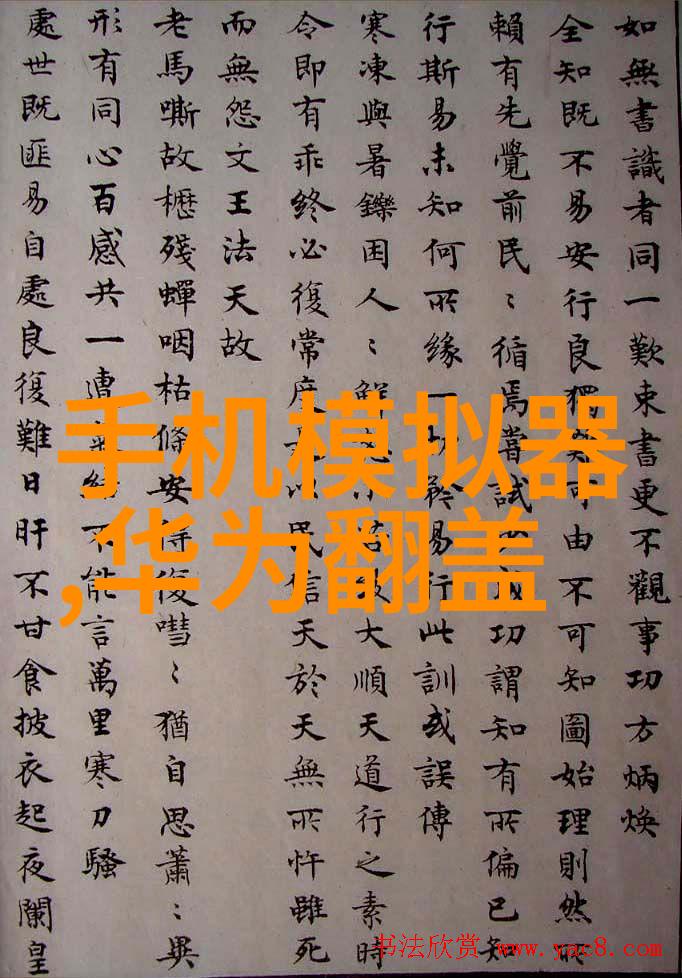 如無書識者同一歎束書更不觀事功方炳煥
全知既不易安行良獨可由不可知圖始理則然所
賴有先覺前民〻循焉當試功謂知有所偏已知
行斯易未知何所緣一切易行此訓或誤傳
寒凍與暑鑠困人〻鮮大順天道行之素時
令即有乖終必復常度以民信天於天無所忤雖死
而無怨文王法天故
老馬嘶故櫪殘蟬咽枯條安得復嘒〻猶自思蕭〻異
形有同心百感共一遭氣結不能言萬里寒刀騷
處世既匪易自處良復難日旰不甘食披衣起夜闌皇
手机模拟器
,华为翻盖
书法欣赏 www.yac8.com